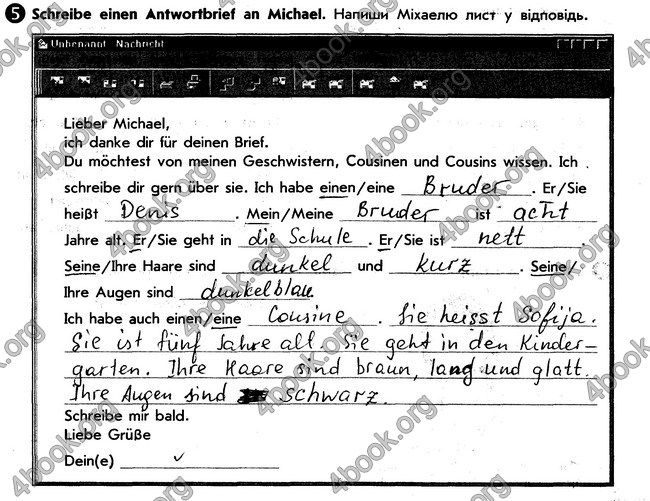 5 Schreibe einen Antwortbrief an Michael. Напиши Міхаелю лист у відповідь.
Unbenannt Nachricht
Lieber Michael,
ich danke dir für deinen Brief.
Du möchtest von meinen Geschwistern, Cousinen und Cousins wissen. Ich
schreibe dir gern über sie. Ich habe einen/eine Bruder. Er/Sie
heißt Denis. Mein/Meine Bruder ist acht
Jahre alt. Er/Sie geht in die Schule. Er/Sie ist nett.
Seine/Ihre Haare sind dunkel und kurz. Seine/
Ihre Augen sind dunkelblau.
Ich habe auch einen/eine Cousine. Sie heisst Sofija.
Sie ist fünf Jahre all. Sie geht in den Kinder-
garten. Ihre Haare sind braun, lang und glatt.
Ihre Augen sind schwarz.
Schreibe mir bald.
Liebe Grüße
Dein(e)
4book.org